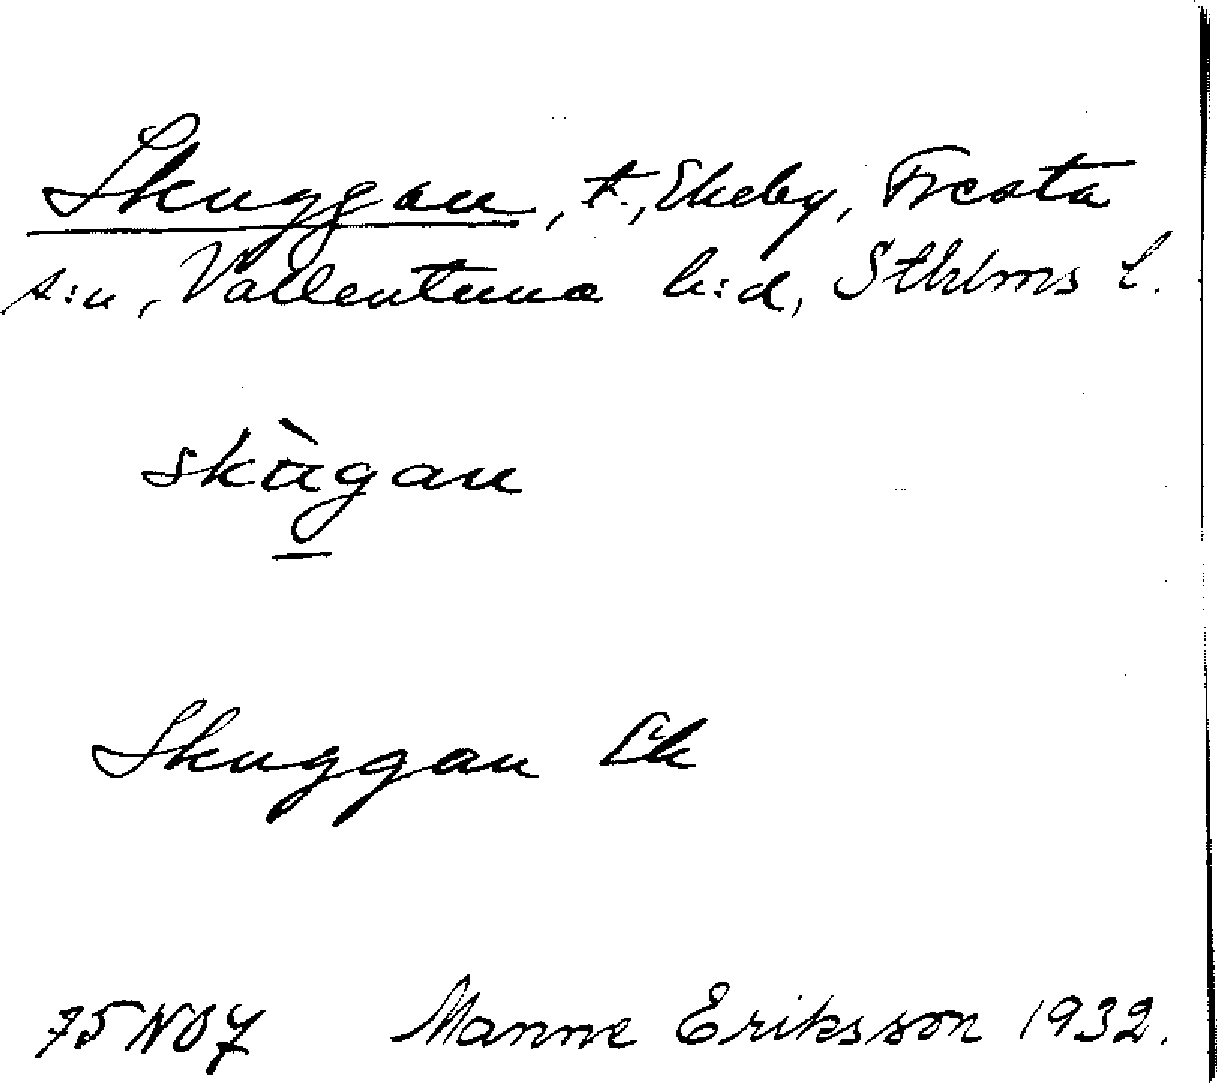 Skuggan, t., Ekeby, Fresta
s:n, Vallentuna h:d, Sthlms l.
skùgan
Skuggan Ek
75 NO7 Manne Eriksson 1932.